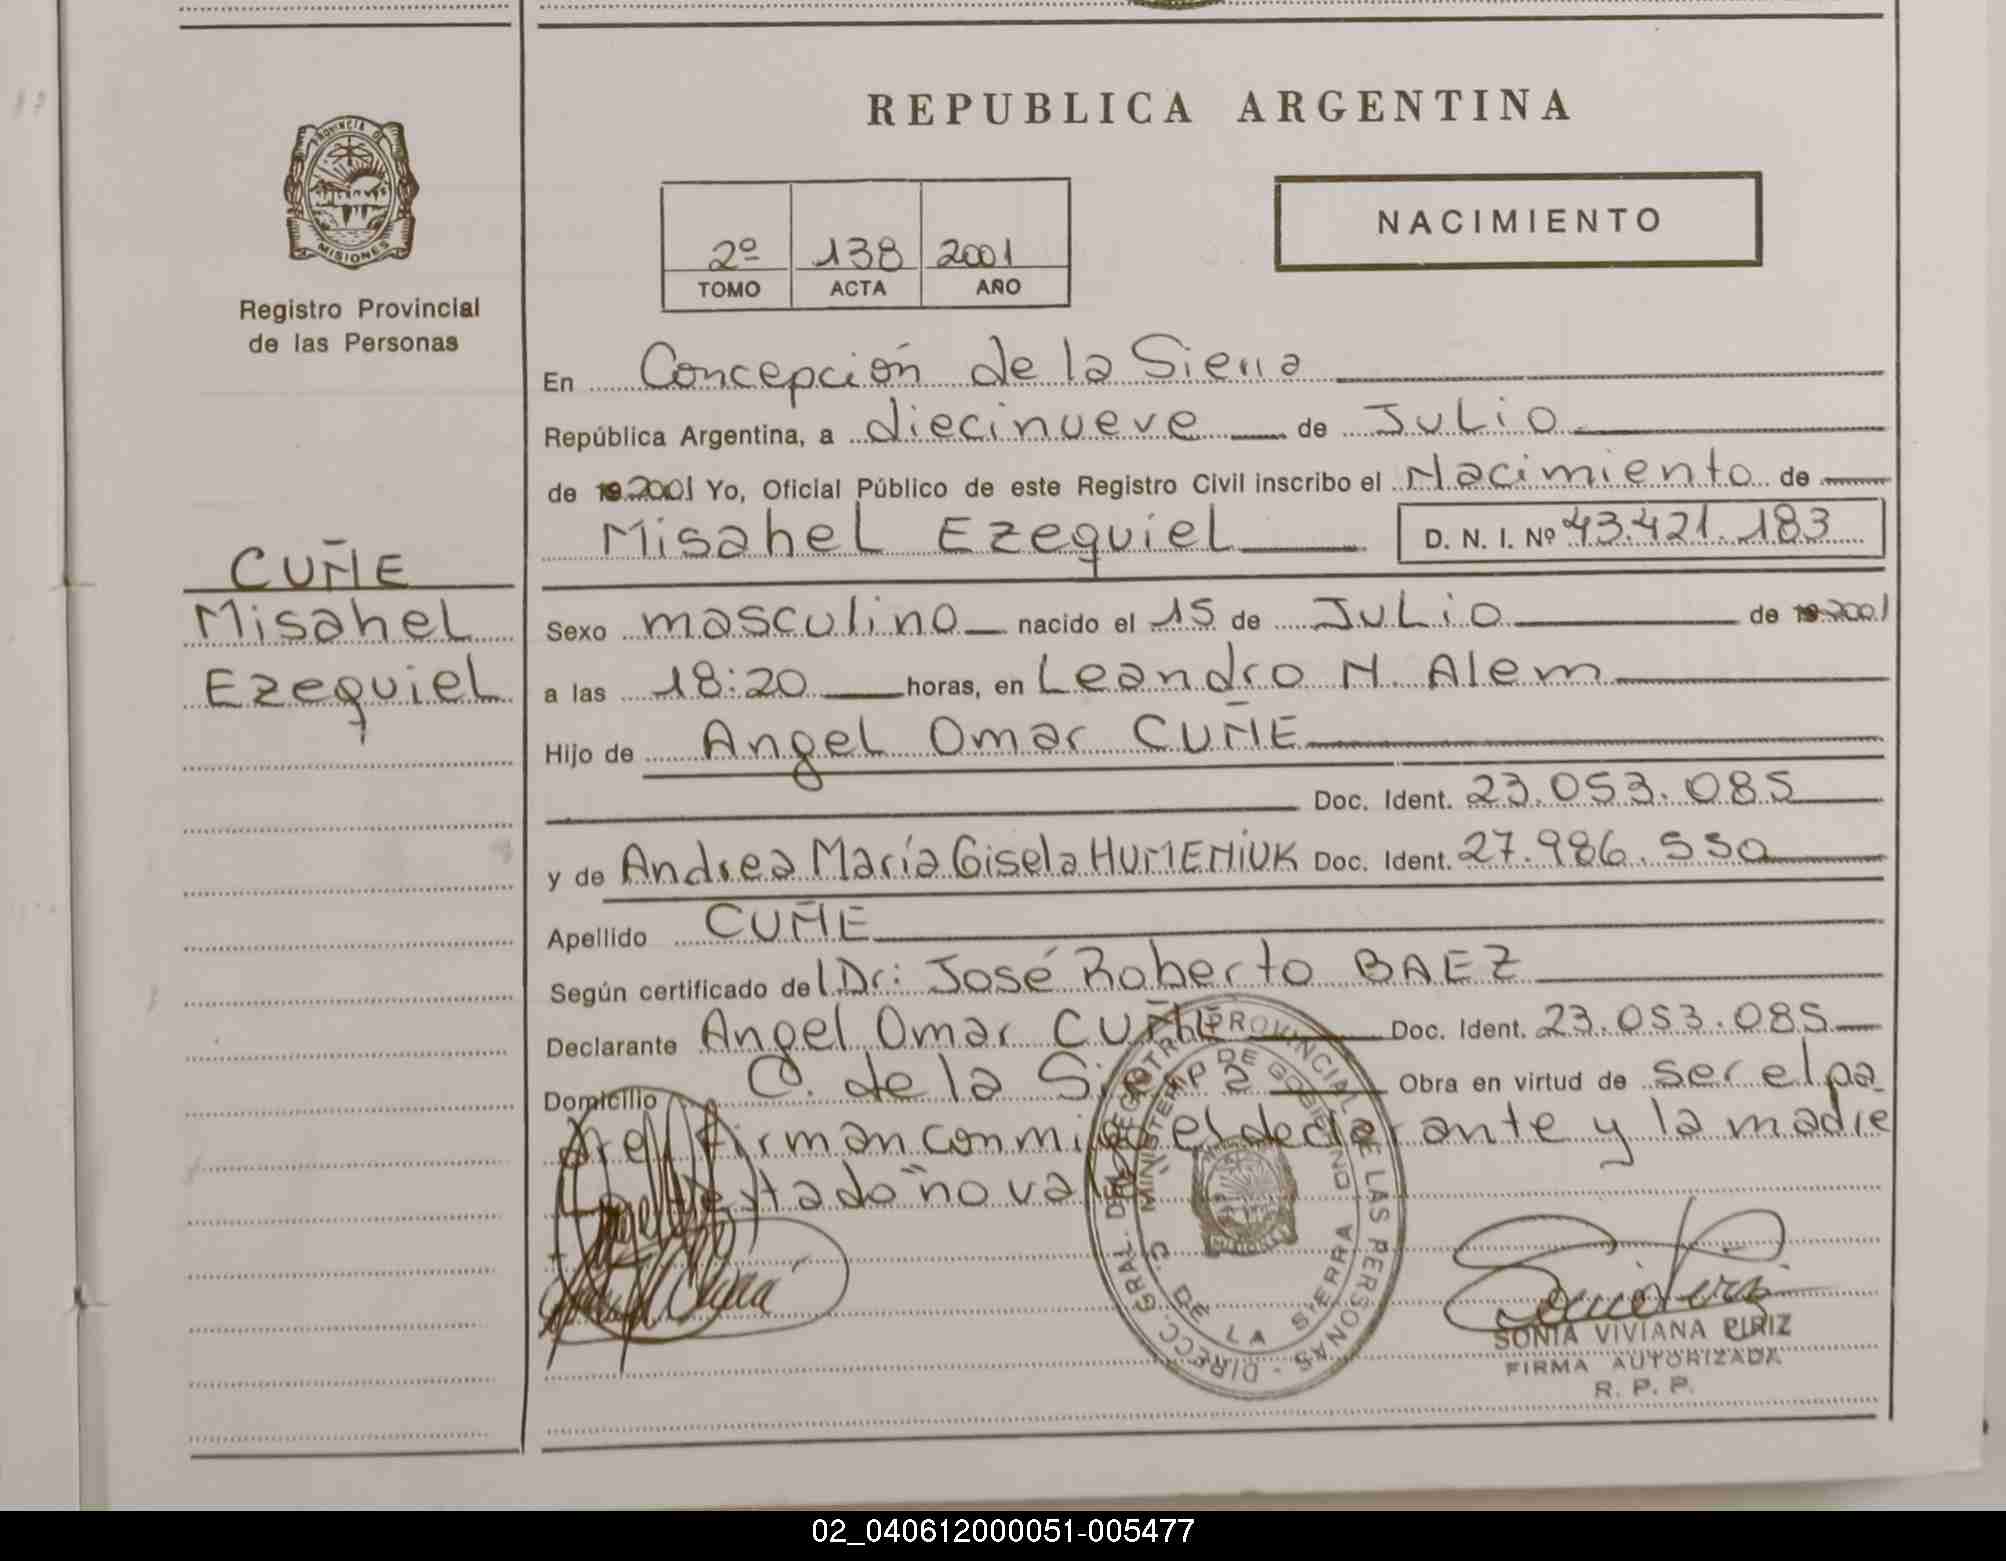 REPUBLICA ARGENTINA
PROVINCIA DE
MISIONES
Registro Provincial
de las Personas
NACIMIENTO
2º 138 2001
TOMO ACTA AÑO
En Concepción de la Sierra
República Argentina, a diecinueve de Julio
de 19 2001 Yo, Oficial Público de este Registro Civil inscribo el Nacimiento de
Misahel Ezequiel D. N. I. Nº 43.421.183
CUÑE
Misahel
Ezequiel
Sexo masculino nacido el 15 de Julio de 19 2001
a las 18:20 horas, en Leandro N. Alem
Hijo de Angel Omar CUÑE
Doc. Ident. 23.053.085
y de Andrea María Gisela HUMENIUK Doc. Ident. 27.986.550
Apellido CUÑE
Según certificado del Dr: José Roberto BAEZ
Declarante Angel Omar CUÑE Doc. Ident. 23.053.085
Domicilio C. de la Sierra Obra en virtud de ser el pa
dre firman conmigo el declarante y la madre
testado no vale
DIRECC. GRAL. DEL REGISTRO PROVINCIAL DE LAS PERSONAS
MINISTERIO DE GOBIERNO
C. DE LA SIERRA
SONIA VIVIANA PIRIZ
FIRMA AUTORIZADA
R. P. P.
02_040612000051-005477